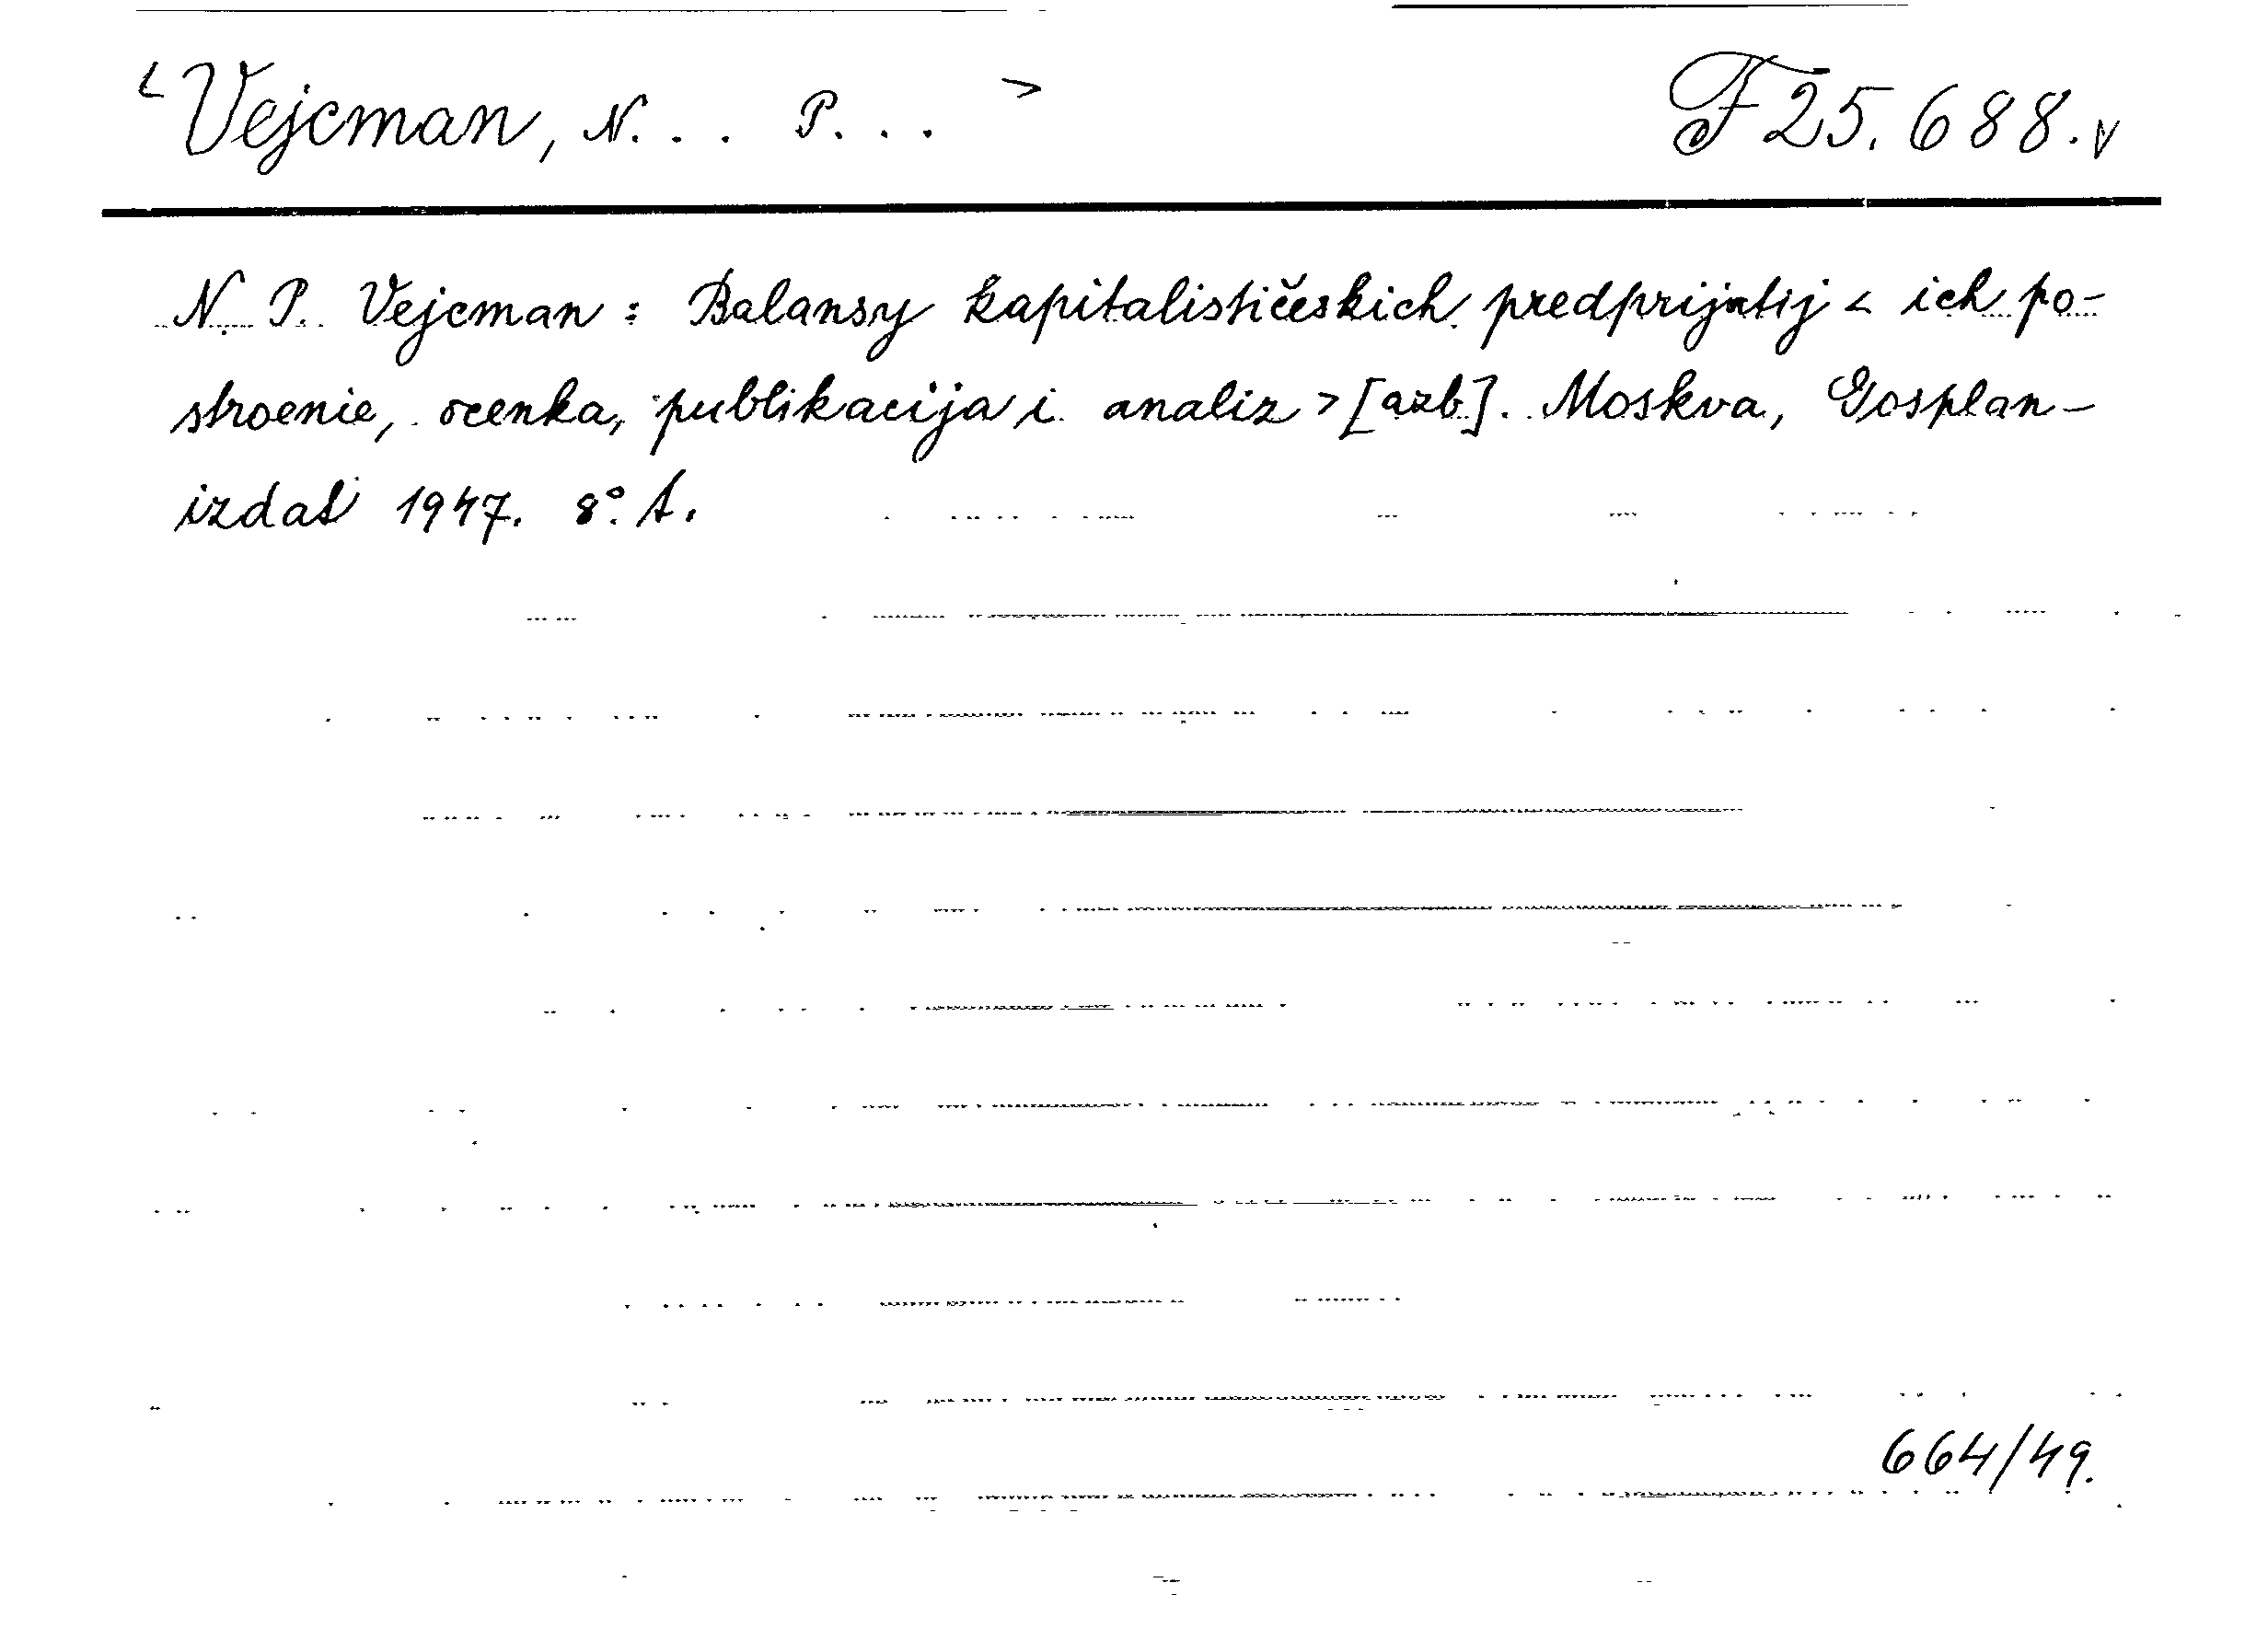 < Vejcman, N. . . P. . . >
F 25.688. v
N. P. Vejcman : Balansy kapitalističeskich predprijatij < ich po-
stroenie, ocenka, publikacija i analiz > [azb]. Moskva, Gosplan-
izdat 1947. 8°. A.
664/49.